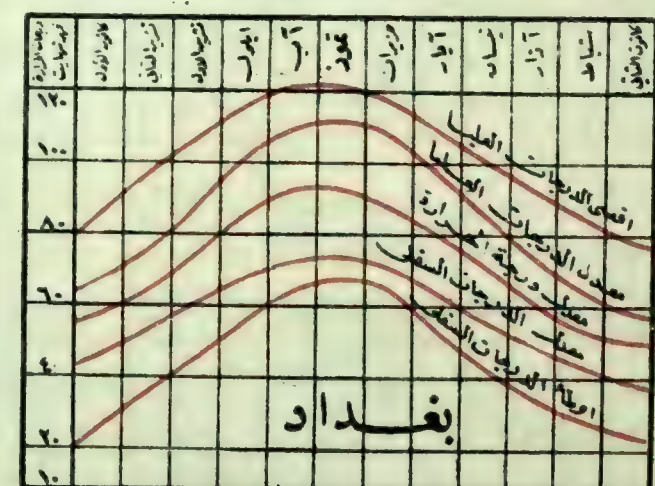 كانون الثاني
شباط
آذار
نيسان
آيار
حزيران
تموز
آب
ايلول
تشرين الاول
تشرين الثاني
كانون الاول
درجات الحرارة
١٢٠
١٠٠
٨٠
٦٠
٤٠
٢٠
١٠
اقصى الدرجات العليا
معدل الدرجات العليا
معدل درجة الحرارة
معدل الدرجات السفلى
اوطأ الدرجات السفلى
بغداد